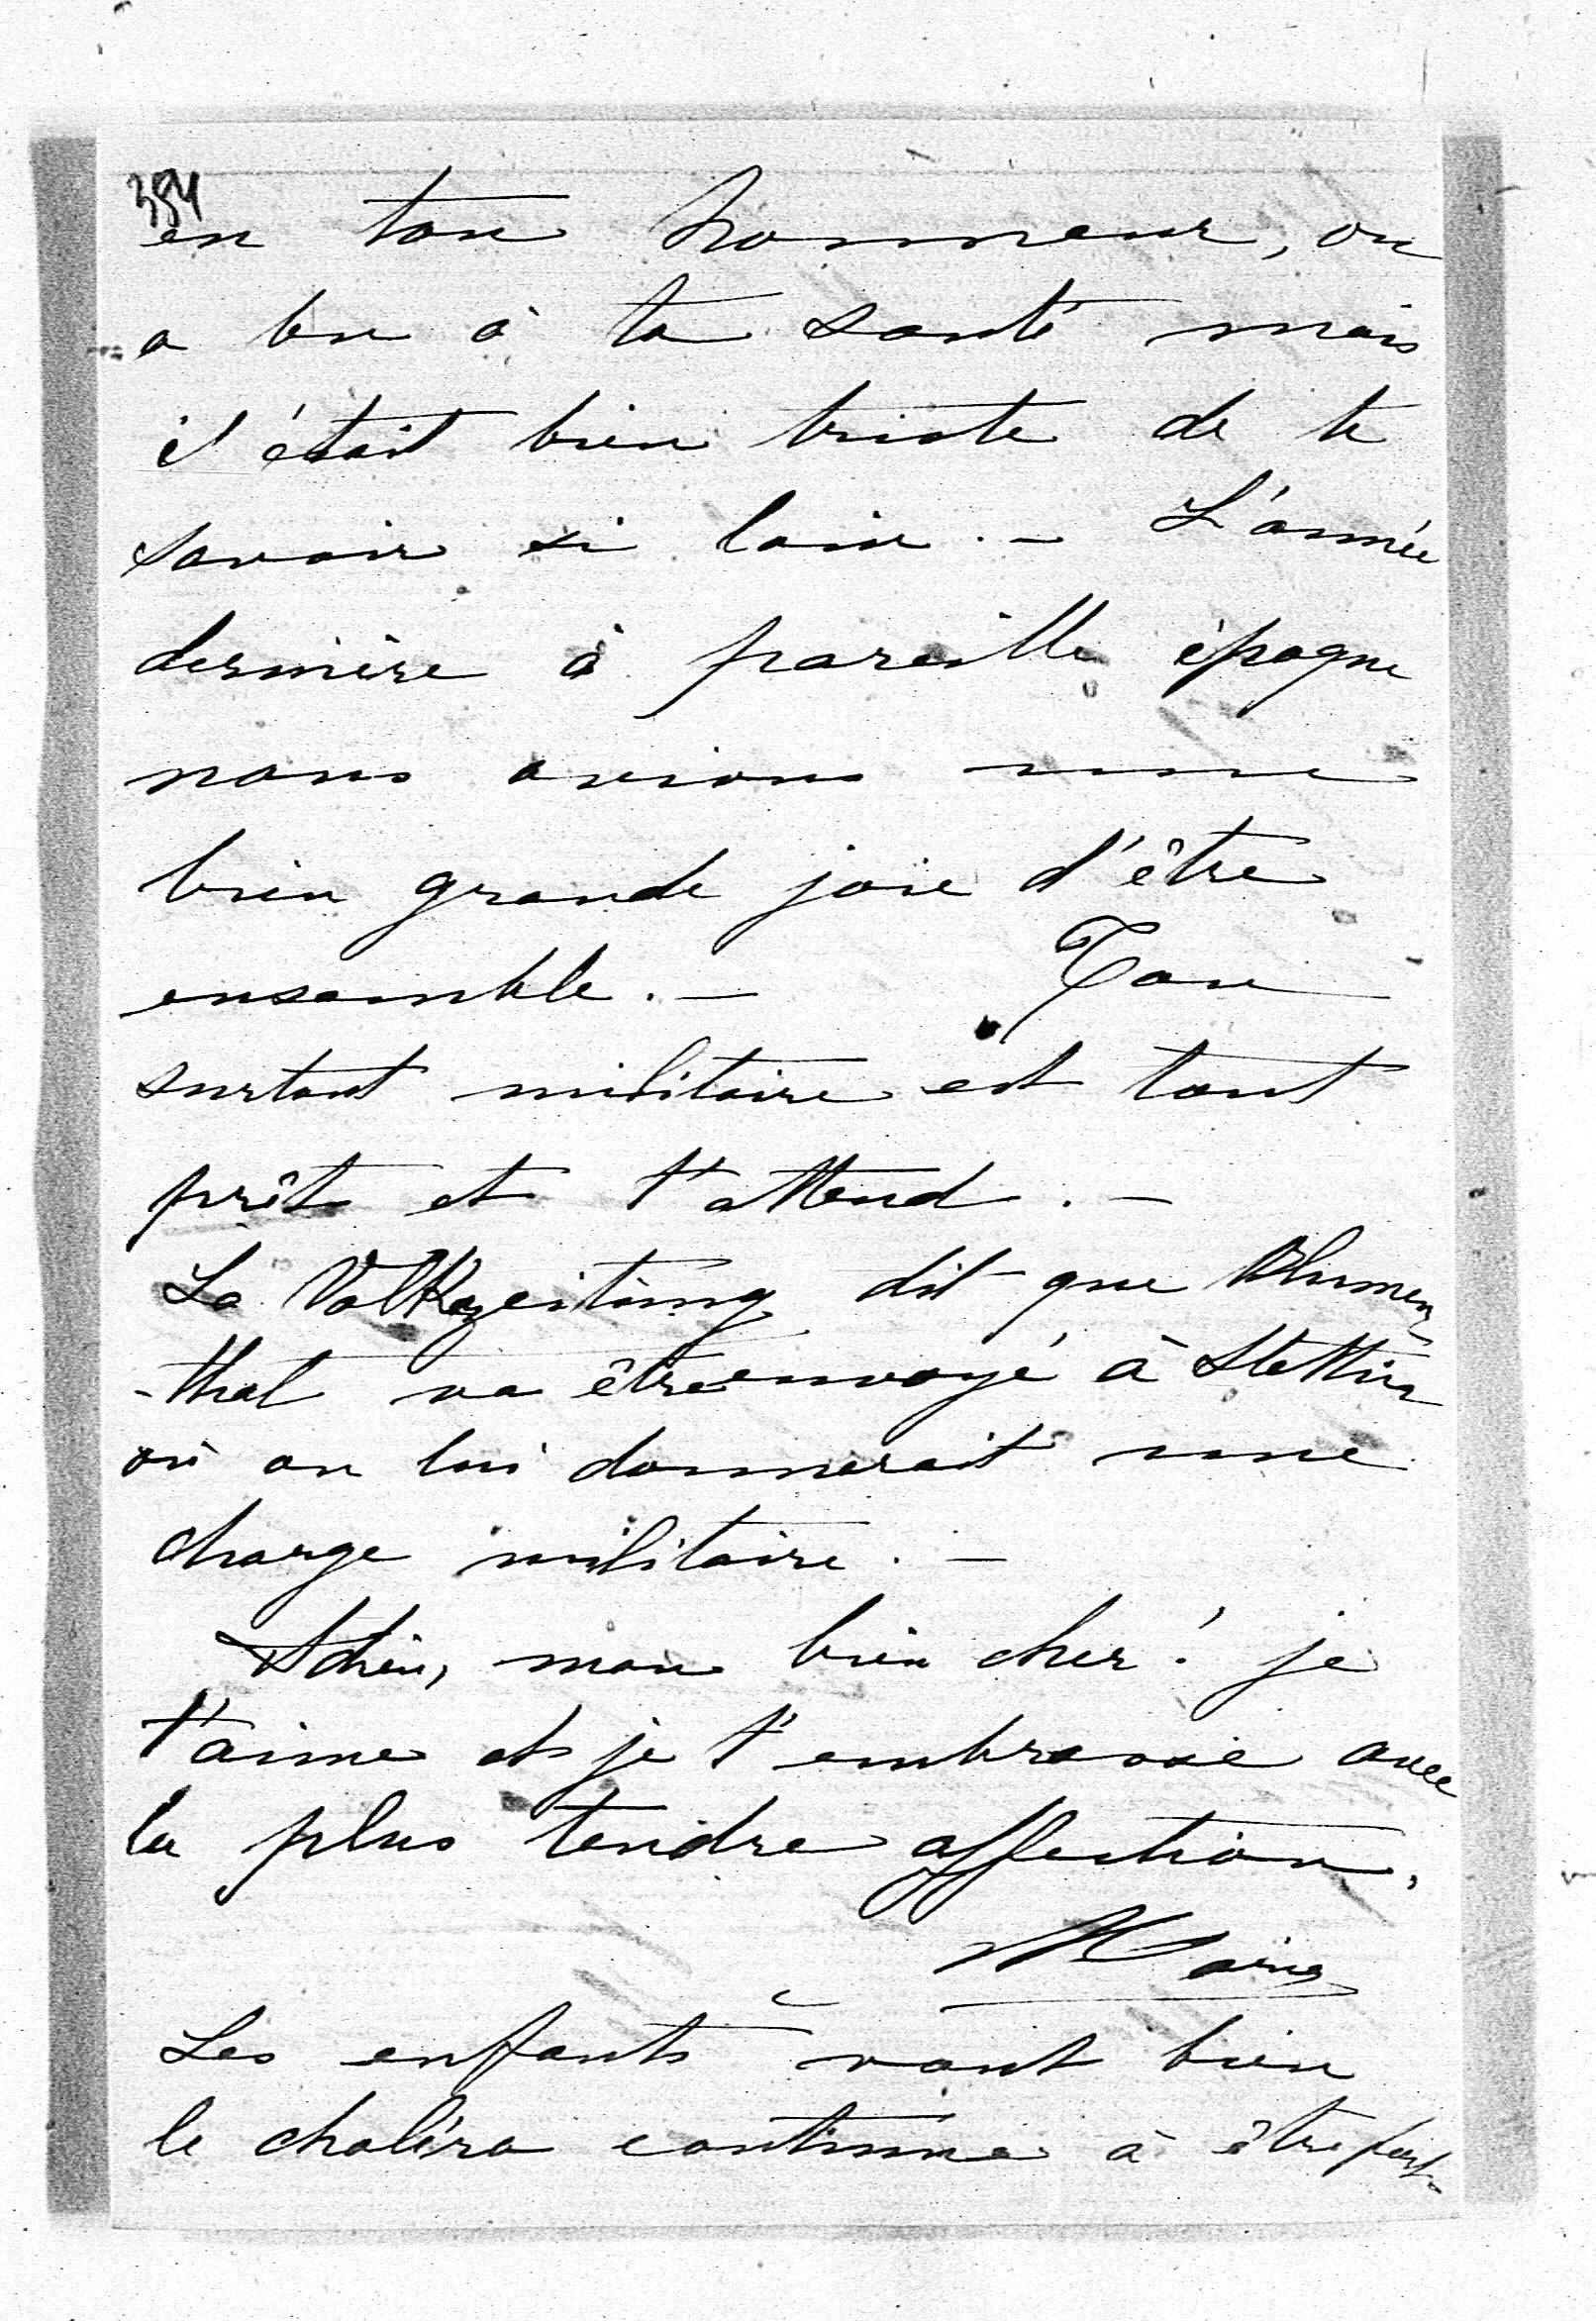 354
en ton honneur, on
a bu à ta santé mais
il était bien triste de te
savoir si loin. — L'année
dernière à pareille époque
nous avions une
bien grande joie d'être
ensemble. — Ton
surtout militaire est tout
prêt et t'attend. —
La Volkszeitung dit que Blumen
-thal va être envoyé à Stettin
où on lui donnerait une
charge militaire. —
Adieu, mon bien cher! je
t'aime et je t'embrasse avec
la plus tendre affection.
Marie
Les enfants vont bien
le choléra continue à être fort.